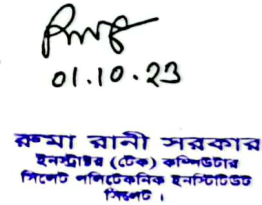 01.10.23
রুমা রানী সরকার
ইনস্ট্রাক্টর (টেক) কম্পিউটার
সিলেট পলিটেকনিক ইনস্টিটিউট
সিলেট।